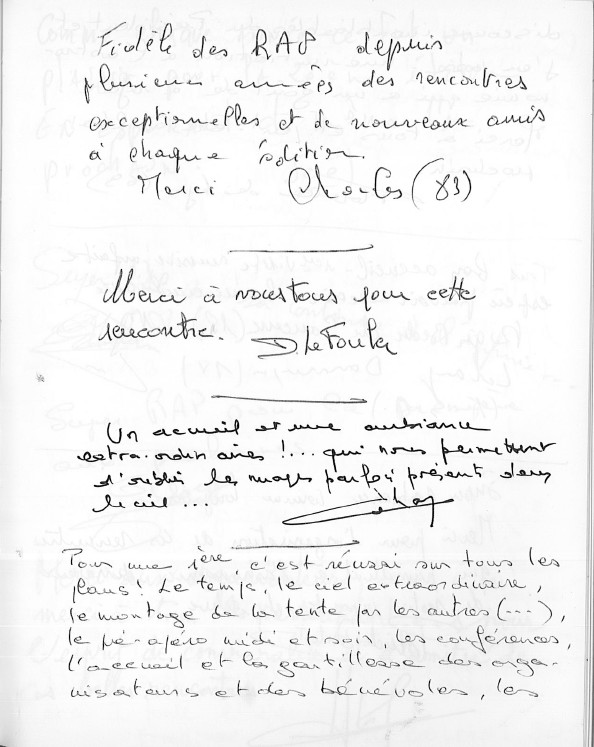 Fidèle des RAP depuis
plusieurs années des rencontres
exceptionnelles et de nouveaux amis
à chaque édition.
Merci Charles (83)
Merci à vous tous pour cette
rencontre.
Un accueil et une ambiance
extra.ordinaires !... qui nous permettent
d'oublier les nuages parfois présents dans
le ciel...
Pour une 1ère c'est réussi sur tous les
plans ! Le temps, le ciel extraordinaire,
le montage de la tente par les autres (...),
le pré-apéro midi et soir, les conférences,
l'accueil et la gentillesse des orga-
nisateurs et des bénévoles, les